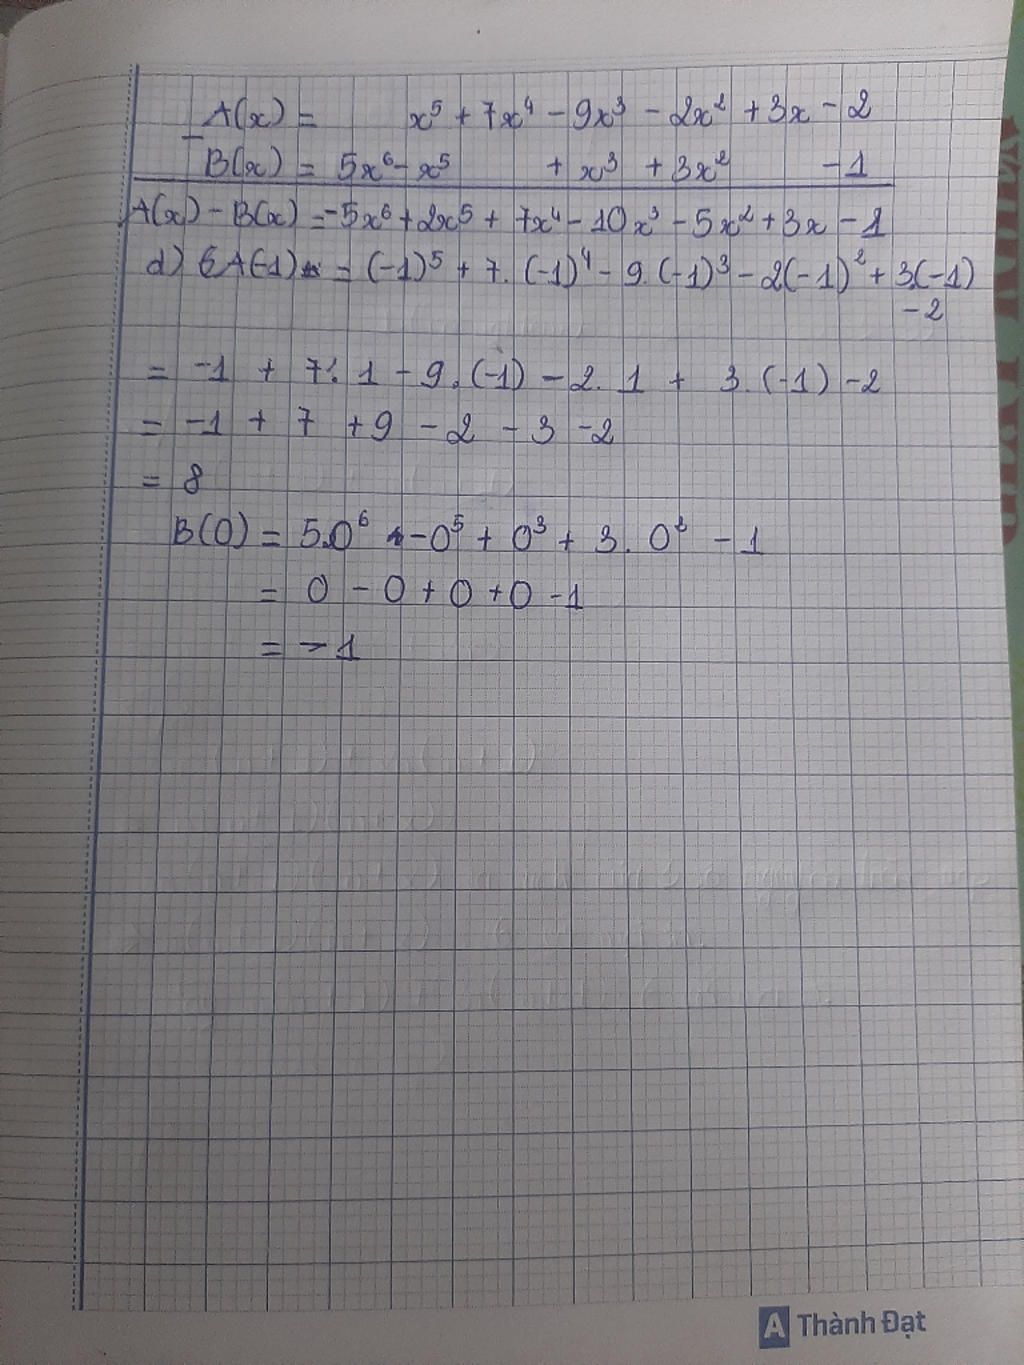 A(x) = x⁵ + 7x⁴ - 9x³ - 2x² + 3x - 2
-
B(x) = 5x⁶ - x⁵ + x³ + 3x² - 1
A(x) - B(x) = -5x⁶ + 2x⁵ + 7x⁴ - 10x³ - 5x² + 3x - 1
d) A(-1) = (-1)⁵ + 7. (-1)⁴ - 9. (-1)³ - 2(-1)² + 3.(-1)
- 2
= -1 + 7. 1 - 9. (-1) - 2. 1 + 3. (-1) - 2
= -1 + 7 + 9 - 2 - 3 - 2
= 8
B(0) = 5.0⁶ - 0⁵ + 0³ + 3. 0² - 1
= 0 - 0 + 0 + 0 - 1
= -1
A Thành Đạt